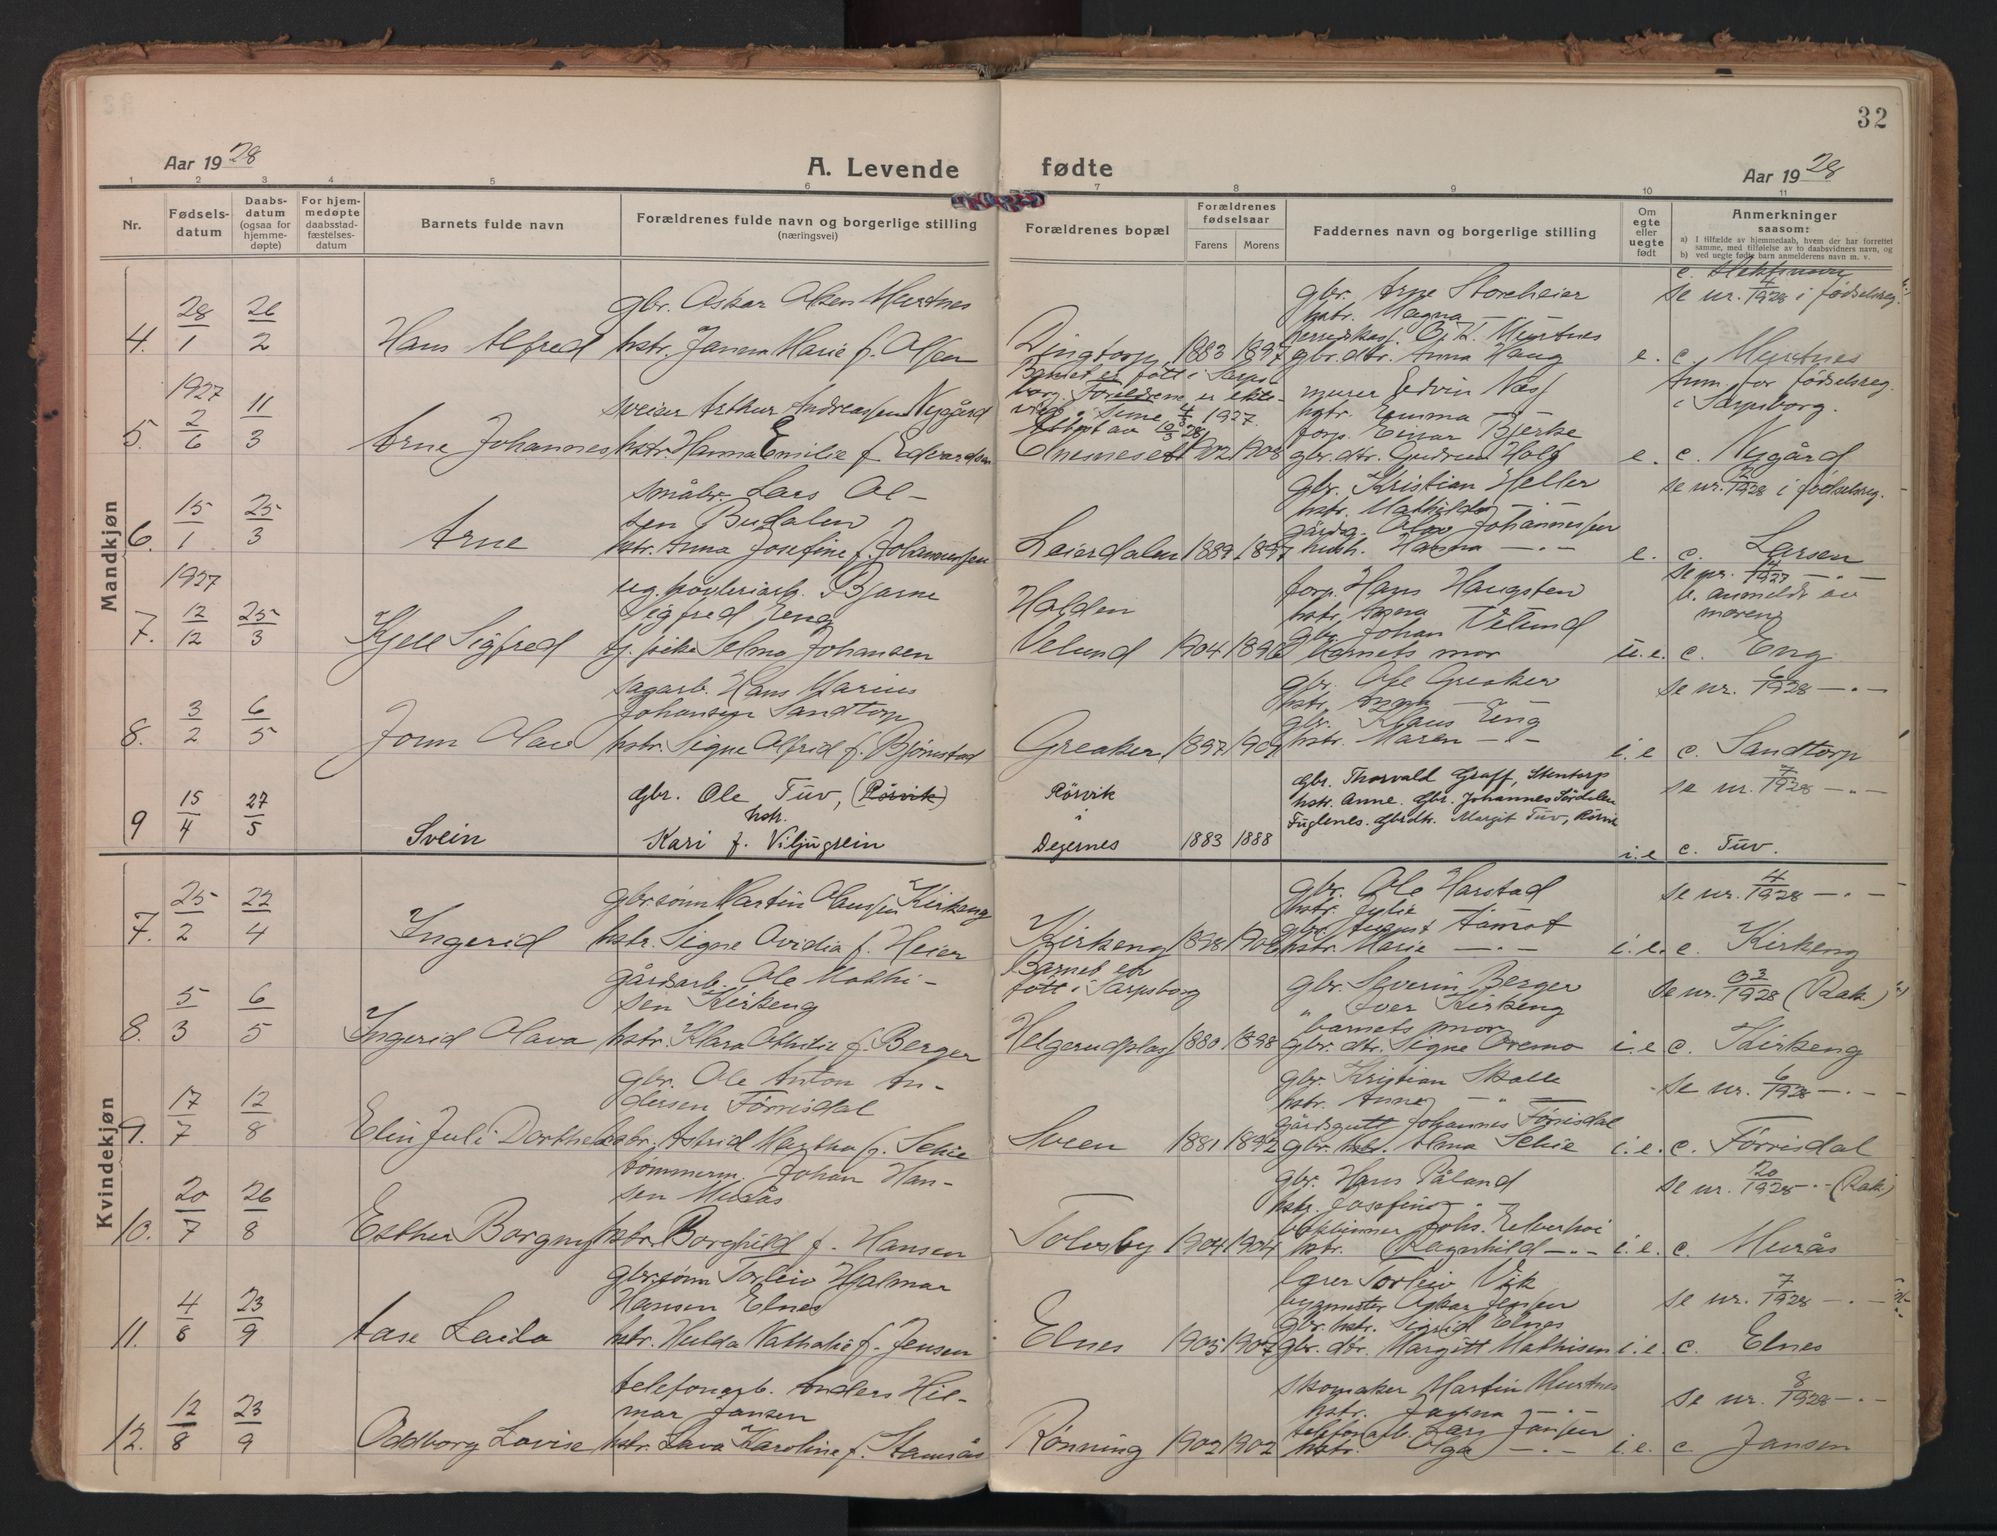 32
Aar 1928
A. Levende fødte
Aar 1928
1 2 3 4 5 6 7 8 9 10 11
Nr.
Fødsels-
datum
Daabs-
datum
(ogsaa for
hjemme-
døpte)
For hjem-
medøpte
daabsstad-
fæstelses-
datum
Barnets fulde navn
Forældrenes fulde navn og borgerlige stilling
(næringsvei)
Forældrenes bopæl
Forældrenes
fødselsaar
Farens Morens
Faddernes navn og borgerlige stilling
Om
egte
eller
uegte
født
Anmerkninger
saasom:
a) I tilfælde av hjemmedaab, hvem der har forrettet
samme, med tilføielse av to daabsvidners navn, og
b) ved uegte fødte barn anmelderens navn m. v.
Mandkjøn
4. 28/1 26/2
Hans Alfred
gbr. Oskar Olsen Murtnes
hstr. Marie f. Olsen
1883 1897
gbr. Arne Storeheier
hstr. Magna —
gbr.dtr. Anna Haug
e.
se nr. 4/1928 i fødselsreg.
c. Murtnes
5. 1927 2/6 11/3
Arne Johannes
sveiser Arthur Andreassen Nygård
hstr. Hanna Emilie f. Edvardsen
Barnet er født i Sarps-
borg. Foreldrene er ekte-
1927
1902 1908
murer Edvin Næss
hstr. Emma —
forp. Einar Bjerke
gbr.dtr. Gudrun
e.
Anm. for fødselsreg.
i Sarpsborg.
c. Nygård
6. 15/1 25/3
Arne
småbr. Lars Ol-
sen Budalen
hstr. Anna Josefine f. Johannessen
Leierdalen 1889 1897
gbr. Kristian Heller
hstr. Mathilde
gårdsg. Olav Johannessen
Hanna — . —
e.
se nr. 12/1928 i fødselsreg.
c. Larsen
7. 1927 12/12 25/3
Kjell Sigfred
ug. Bjarne
Sigfred Eng
tj. pike Selma Johansen
Halden
Velund 1904 1896
forp. Hans Haugsten
hstr. Anna
gbr. Johan Velund
barnets mor
u.e.
se nr. 14/1927 — . —
b. anmeldt av
moren
c. Eng
8. 3/2 6/5
John Olav
sagarb. Hans Marius
Johansen Sandtorp
hstr. Signe Alfrid f. Bjørnstad
Greaker 1897 1901
gbr. Ole Greaker
hstr. Anna —
gbr. Klaus Eng
hstr. Maren — . —
i.e
se nr. 6/1928 — . —
c. Sandtorp
9 15/4 27/5
Svein
Gbr. Ole Tuv, (Rørvik)
hstr.
Kari f. Viljugrein
Rørvik
i
Degernes 1883 1888
Gbr. Thorvald Graff, Stentorp
hstr. Anne. Gbr. Johannes Sørdalen
Fuglenes. Gbrdtr. Margit Tuv, Rørvik
i.e
se nr. 7/1928 — . —
c. Tuv.
Kvindekjøn
7. 25/2 22/4
Ingerid
gbr.sønn Martin Olaussen Kirkeng
hstr. Signe Ovidia f. Heier
Kirkeng 1898 1906
gbr. Ole Harstad
hstr. Julie
gbr. August Aamot
hstr. Marie — . —
i.e.
se nr. 4/1928 — . —
c. Kirkeng
8. 5/3 6/5
Ingerid Olava
gårdsarb. Ole Mathi-
sen Kirkeng
hstr. Klara Othilie f. Berger
Barnet er
født i Sarpsborg
Helgerudplass 1880 1898
gbr. Severin Berger
" Iver Kirkeng
barnets mor
gbr.dtr. Signe Oremo
i.e
se nr. 33/1928 (Rak.)
c. Kirkeng
9. 17/7 12/8
Elin Juli Dorthea
gbr. Ole Anton An-
dersen Førrisdal
hstr. Astrid Martha f. Schie
Sveen 1881 1892
gbr. Kristian Skolle
hstr. Anne — " —
gårdsgutt Johannes Førrisdal
gbr. hstr. Alma Schie
i.e.
se nr. 6/1928 — . —
c. Førrisdal
10. 20/7 26/8
Esther Borgny
tømmerm. Johan Han-
sen Murås
hstr. Borghild f. Hansen
Tolesby 1904 1904
gbr. Hans Påland
hstr. Josefine
Johs. Elverhøi
hstr. Ragnhild — . —
i.e.
se nr. 20/1928 — . — (Rak.)
c. Murås
11. 4/8 23/9
Aase Laila
gbr.sønn Torleiv Hjalmar
Hansen Elnes
hstr. Hulda Nathalie f. Jensen
Elnes 1905 1907
lærer Torleiv Vik
bygmester Oskar Jensen
gbr. hstr. Sigrid Elnes
gbr. dtr. Margitt Mathisen
i.e.
se nr. 7/1928 — . —
c. Elnes
12. 12/8 23/9
Oddborg Lovise
telefonarb. Anders Hil-
mar Jansen
hstr. Lava Karoline f. Stamsås
Rønning 1902 1902
skomaker Martin Murtnes
hstr. — . —
telefonarb. Lars Jansen
hstr. Olga — . —
i.e.
se nr. 8/1928 — . —
c. Jansen